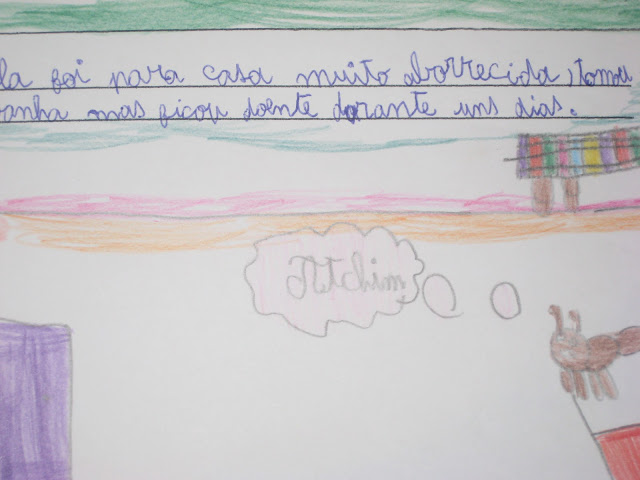 la foi para casa muito aborrecida, tomou
anha mas ficou doente durante uns dias.
Atchim